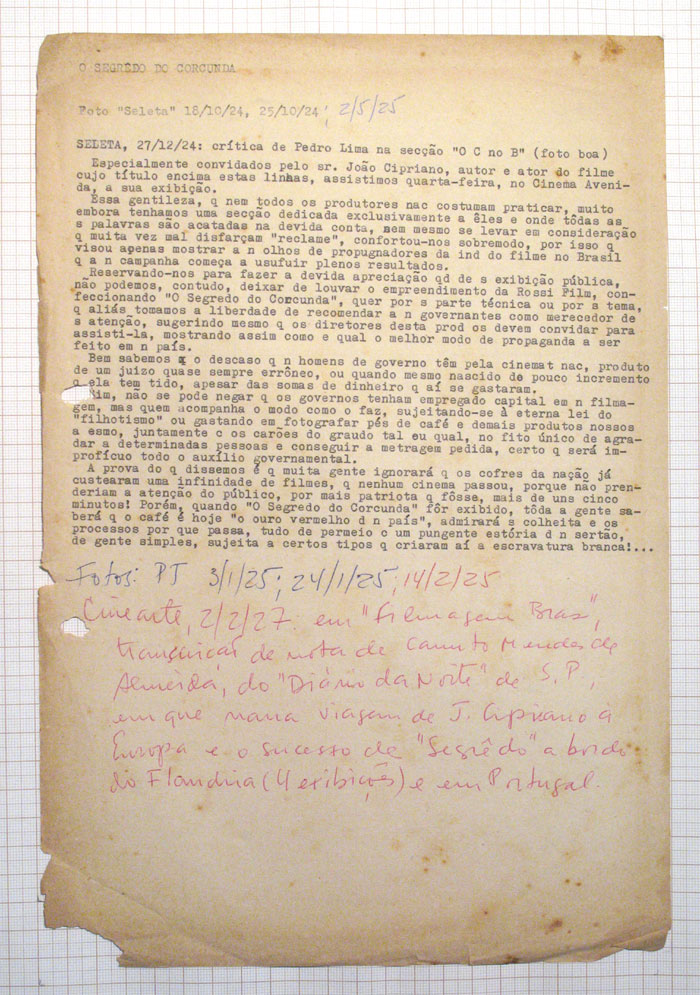 O SEGRÊDO DO CORCUNDA
Foto "Seleta" 18/10/24, 25/10/24; 2/5/25
SELETA, 27/12/24: crítica de Pedro Lima na secção "O C no B" (foto boa)
Especialmente convidados pelo sr. João Cipriano, autor e ator do filme
cujo título encima estas linhas, assistimos quarta-feira, no Cinema Aveni-
da, a sua exibição.
Essa gentileza, q nem todos os produtores nac costumam praticar, muito
embora tenhamos uma secção dedicada exclusivamente a êles e onde tôdas as
s palavras são acatadas na devida conta, nem mesmo se levar em consideração
q muita vez mal disfarçam "reclame", confortou-nos sobremodo, por isso q
visou apenas mostrar a n olhos de propugnadores da ind do filme no Brasil
q a n campanha começa a usufuir plenos resultados.
Reservando-nos para fazer a devida apreciação qd de s exibição pública,
não podemos, contudo, deixar de louvar o empreendimento da Rossi Film, con-
feccionando "O Segredo do Corcunda", quer por s parte técnica ou por s tema,
q aliás tomamos a liberdade de recomendar a n governantes como merecedor de
s atenção, sugerindo mesmo q os diretores desta prod os devem convidar para
assisti-la, mostrando assim como e qual o melhor modo de propaganda a ser
feito em n país.
Bem sabemos q o descaso q n homens de governo têm pela cinemat nac, produto
de um juizo quase sempre errôneo, ou quando mesmo nascido de pouco incremento
q ela tem tido, apesar das somas de dinheiro q aí se gastaram.
Sim, não se pode negar q os governos tenham empregado capital em n filma-
gem, mas quem acompanha o modo como o faz, sujeitando-se à eterna lei do
"filhotismo" ou gastando em fotografar pés de café e demais produtos nossos
a esmo, juntamente c os carões do graudo tal eu qual, no fito único de agra-
dar a determinadas pessoas e conseguir a metragem pedida, certo q será im-
profícuo todo o auxílio governamental.
A prova do q dissemos é q muita gente ignorará q os cofres da nação já
custearam uma infinidade de filmes, q nenhum cinema passou, porque não pren-
deriam a atenção do público, por mais patriota q fôsse, mais de uns cinco
minutos! Porém, quando "O Segredo do Corcunda" fôr exibido, tôda a gente sa-
berá q o café é hoje "o ouro vermelho d n país", admirará s colheita e os
processos por que passa, tudo de permeio c um pungente estória d n sertão,
de gente simples, sujeita a certos tipos q criaram aí a escravatura branca!...
Fotos: PT 3/1/25; 24/1/25; 14/2/25
Cinearte, 2/2/27: em "Filmagem Bras",
transcrição de nota de Canuto Mendes de
Almeida, do "Diário da Noite" de S.P,
em que narra viagem de J. Cipriano à
Europa e o sucesso de "Segrêdo" a bordo
do Flandria (4 exibições) e em Portugal.